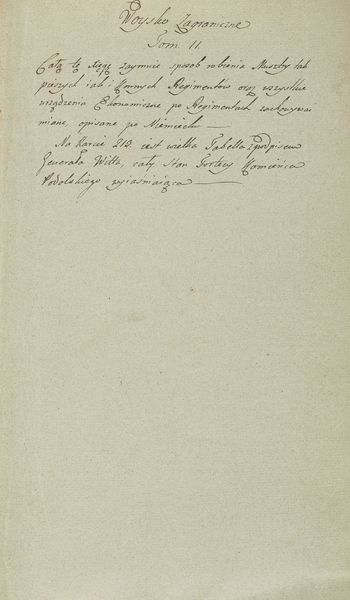 Woysko Zagraniczne
Tom II.
Całą tę xięgę zaymuie sposob robienia Musztry tak
pieszych iak i Konnych Regimentów oraz wszystkie
urządzenia Ekonomiczne po Regimentach zachowywa
miane, opisane po Niemiecku —
Na Karcie 213. iest wielka Tabella z podpisem
Generała Witta, cały Stan Fortecy Kamieńca
Podolskiego wyiaśniaiąca —